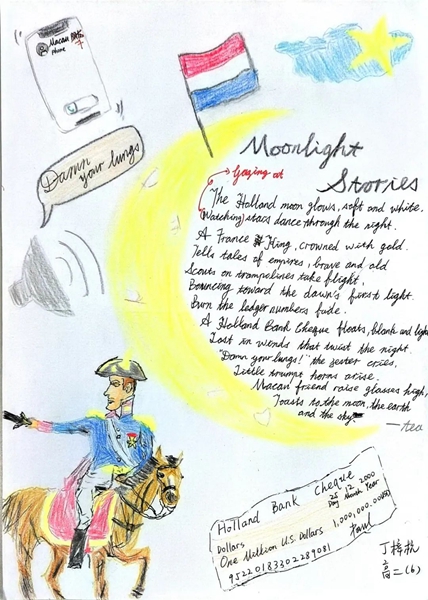 Macau
Phone
Damn
your lungs
Moonlight
Stories
Gazing at
The Holland moon glows, soft and white.
Watching stars dance through the night.
A France King, crowned with gold.
Tells tales of empires, brave and old
Scouts on trampolines take flight.
Bouncing toward the dawn's first light.
Burn the ledger numbers fade.
A Holland Bank Cheque floats, blank and light
Lost in winds that twist the night.
"Damn your lungs!" the jester cries,
Little trumpt horns arise.
Macau friend raise glasses high,
Toasts to the moon, the earth
and the sky
—tea
Holland Bank Cheque
25 12 2000
Day Month Year
Dollars
One U.S. Dollars 1,000,000.00
95220183302289081
丁梓杭
高二(6)